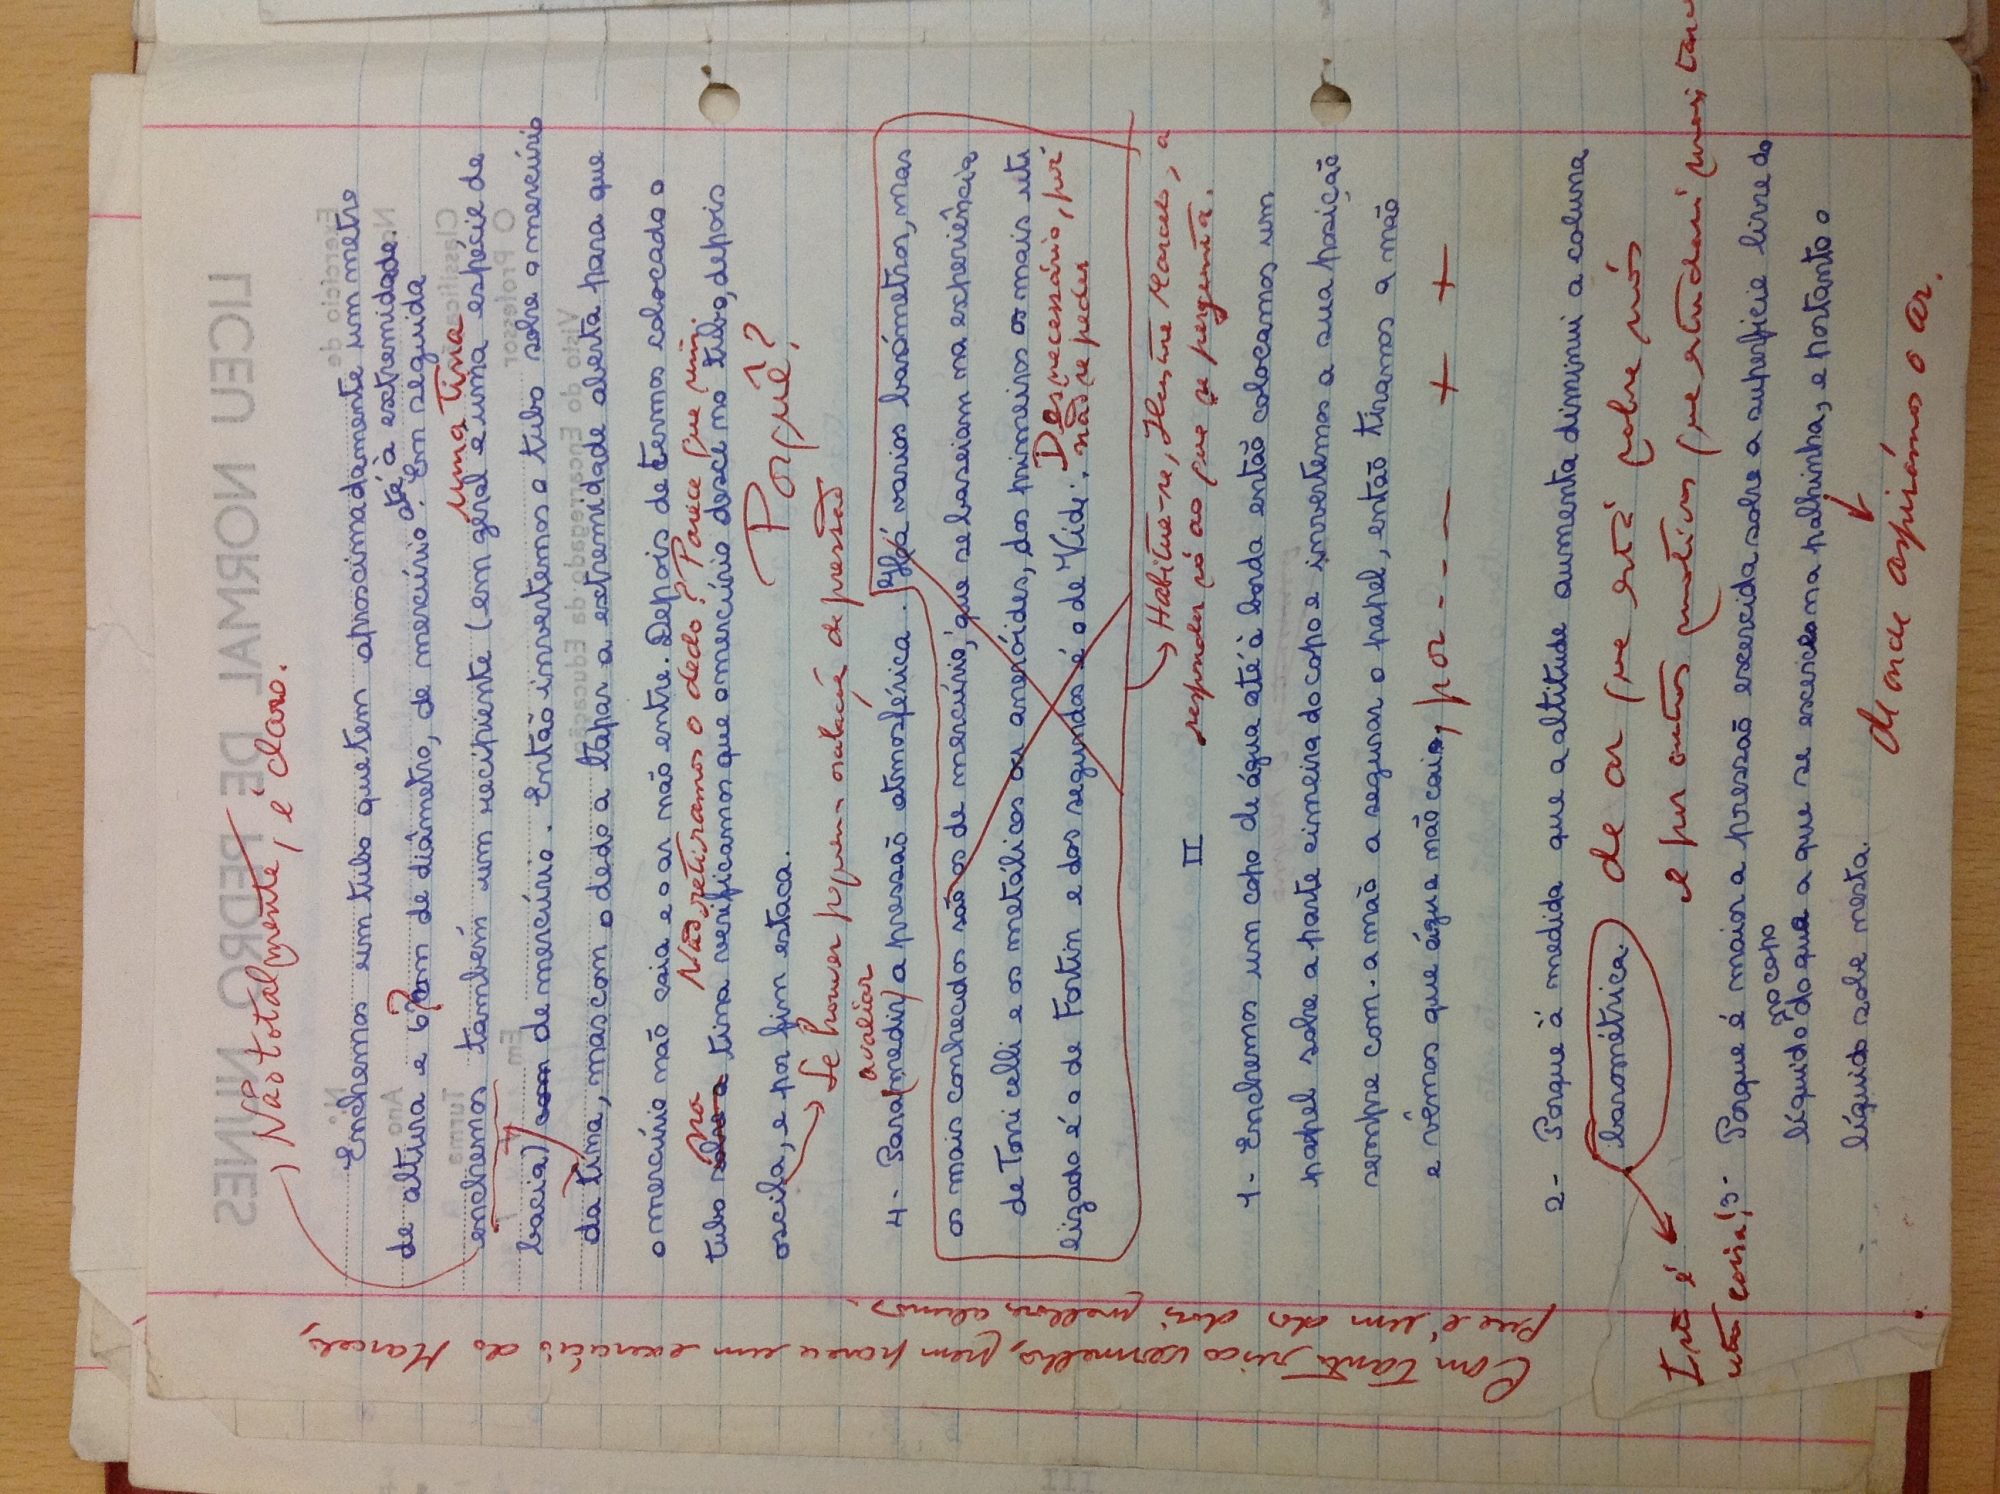 Não totalmente, é claro.
Enchemos um tubo que tem aproscimadamente um metro
até à extremidade.
de altura e 6? cm de diâmetro, de mercúrio. Em seguida
uma tina
enchemos também um recipiente (em geral é uma espécie de
bacia) com de mercúrio. Então invertemos o tubo sobre o mercúrio
da tina, mas com o dedo a tapar a extremidade aberta para que
o mercúrio não caia e o ar não entre. Depois de termos colocado o
Não retiramos o dedo? Parece que sim
na
tubo sobre a tina verificamos que o mercúrio desce no tubo, depois
oscila, e por fim estaca.
Porquê?
Se houver pequena oscilação de pressão
avaliar
4- Para medir a pressão atmosférica. Há varios barómetros, mas
os mais conhecidos são os de mercúrio, que se baseiam na experiência
de Torricelli e os metálicos ou aneróides, dos primeiros os mais uti
lizado é o de Fortin e dos segundos é o de Vidi.
Desnecessário, pois
não se pedia
Habitue-se, Ilustre Marcelo, a
responder só ao que se pergunta.
II
1- Enchemos um copo de água até à borda então colocamos um
papel sobre a parte cimeira do copo e invertemos a sua posição
sempre com a mão a segurar o papel, então tiramos a mão
e vêmos que água não cai, por - - - + +
2- Porque à medida que a altitude aumenta diminui a coluna
barométrica. de ar que está sobre nós
e por outros motivos que estudará mais tarde
Isto é
outra coisa!
3- Porque é maior a pressão exercida sobre a superfície livre do
no copo
líquido do que a que se exerce na palhinha, e portanto o
líquido sobe nesta.
de onde aspirámos o ar.
Com tanto risco vermelho, nem parece um exercício do Marcelo,
que é um dos dois melhores alunos.
LICEU NORMAL DE PEDRO NUNES
Exercício de
N.º
Ano
Turma
Classificação
O Professor
Em
Visto do Encarregado da Educação
III